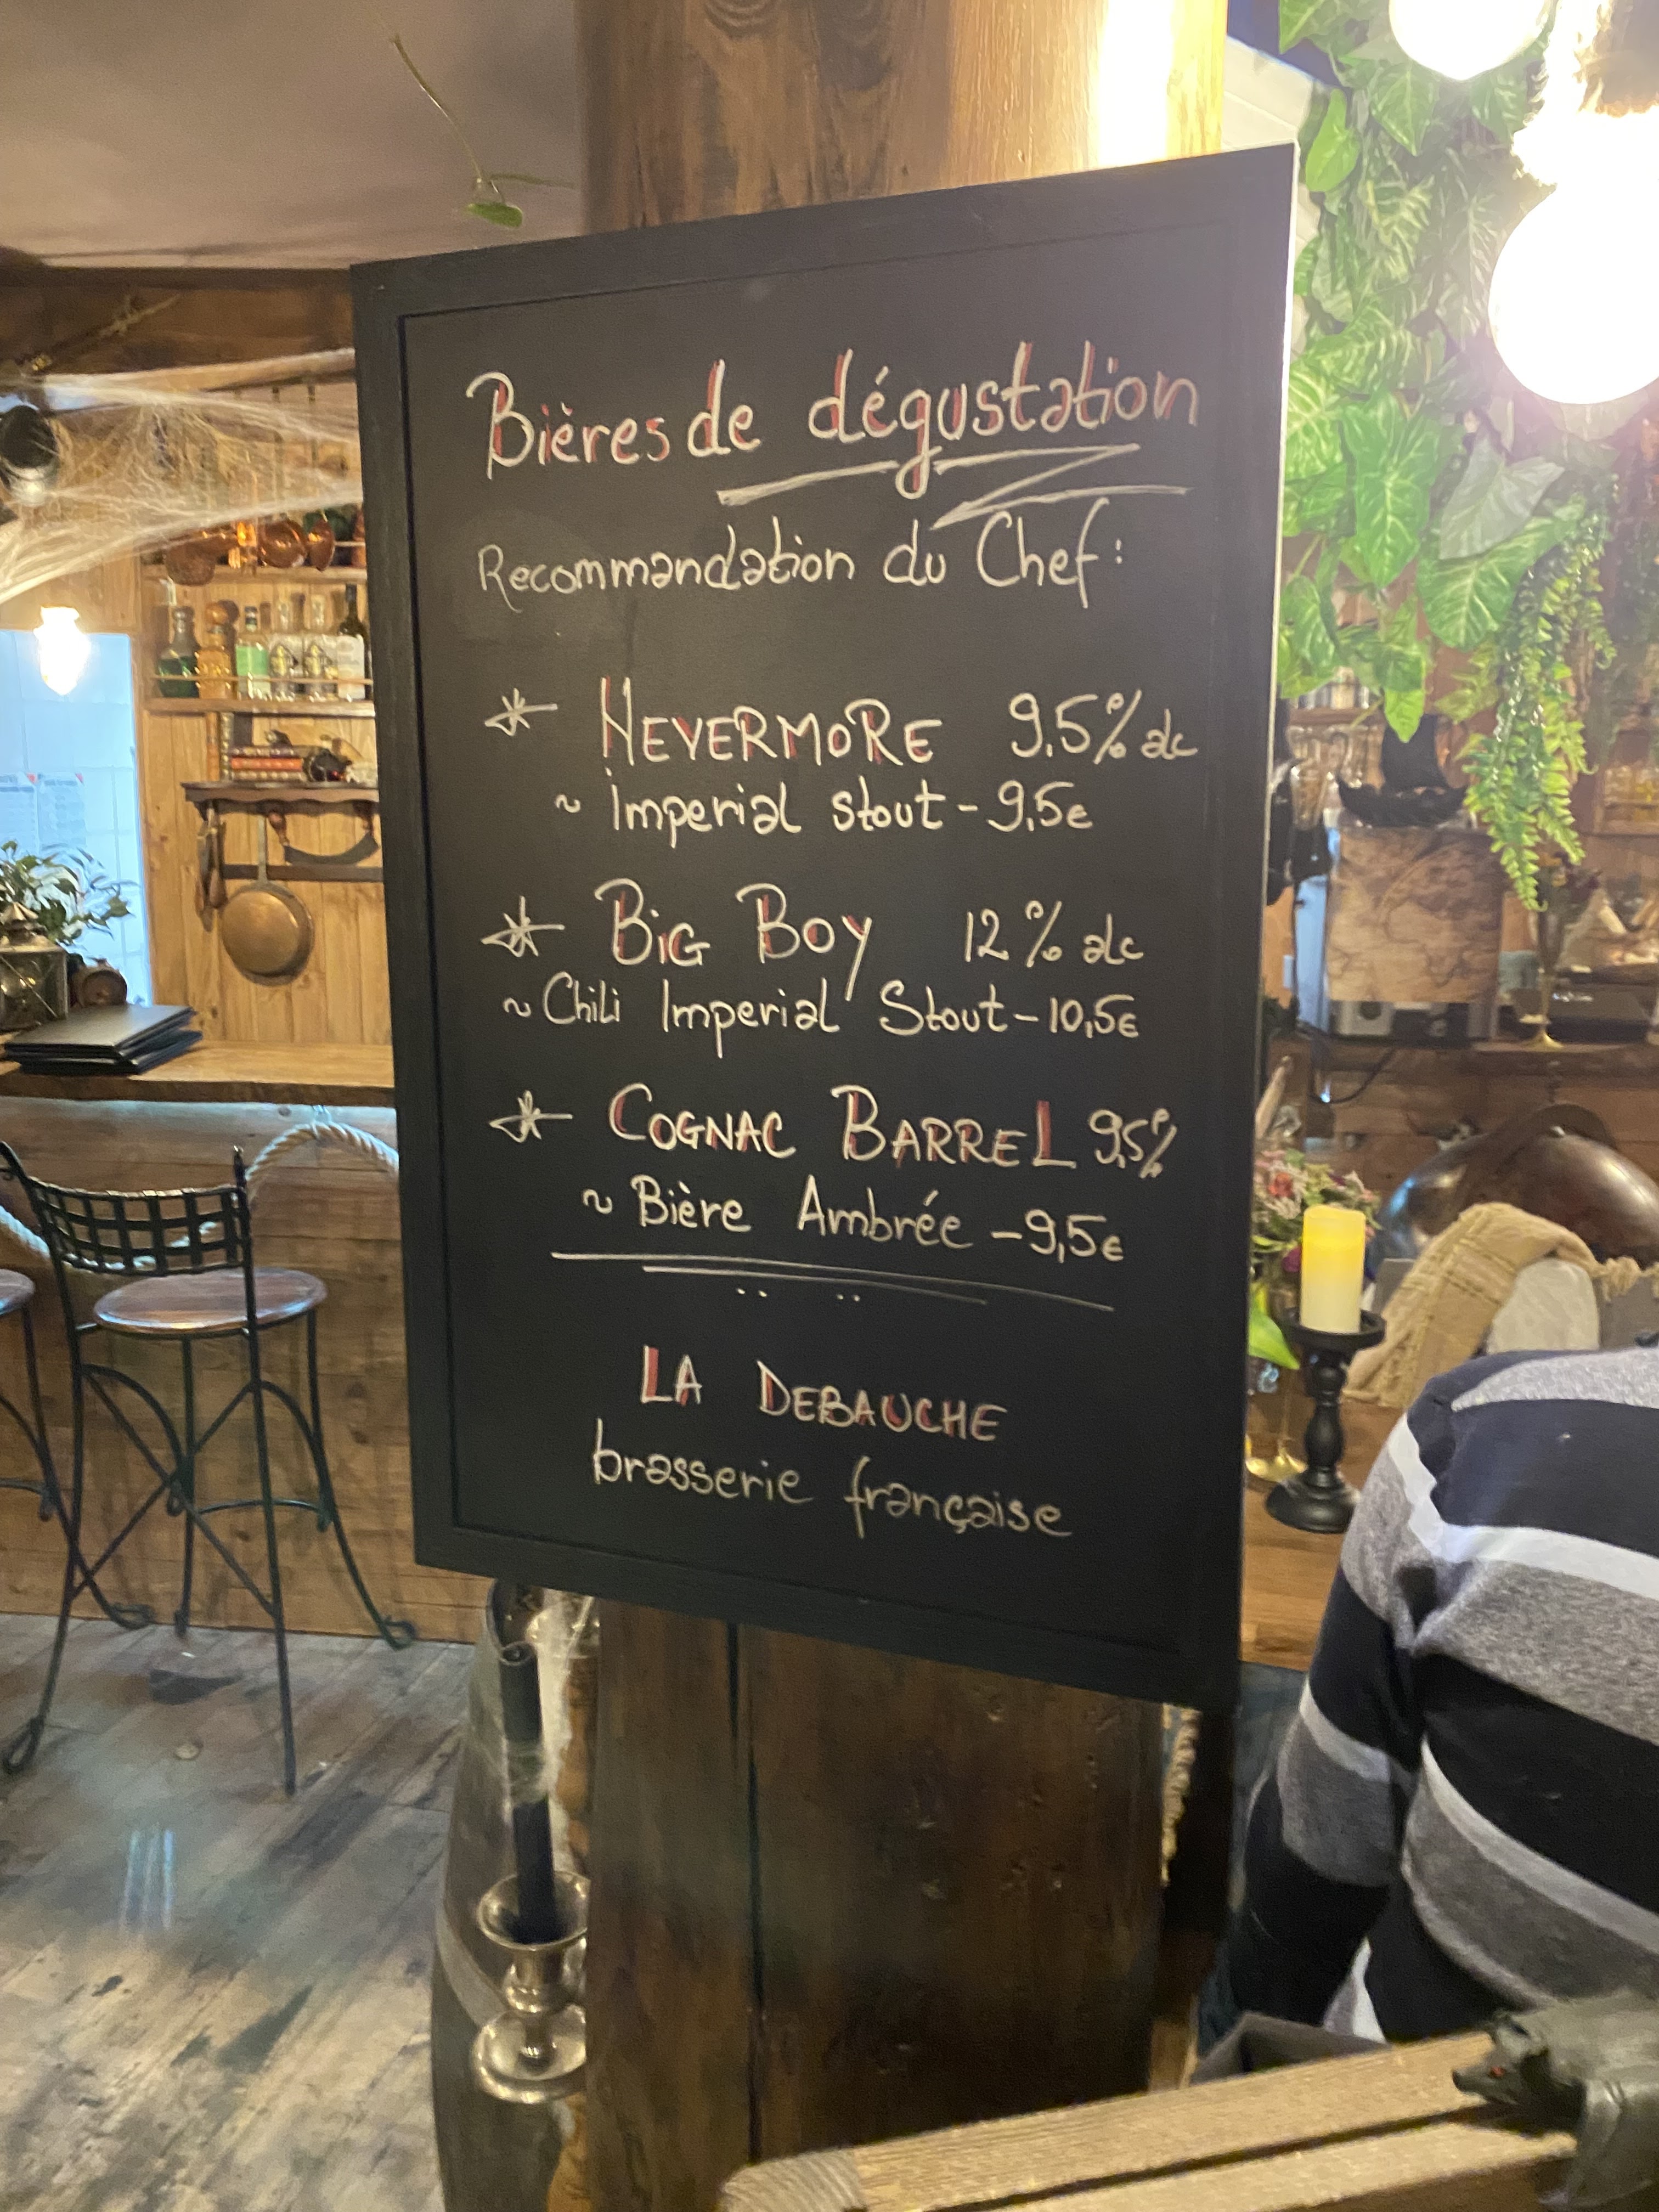 Bières de dégustation
Recommandation du Chef :
* NEVERMORE 9.5% alc
~ Imperial stout - 9,5€
* BIG BOY 12% alc
~ Chili Imperial Stout - 10,5€
* COGNAC BARREL 9,5%
~ Bière Ambrée - 9,5€
LA DEBAUCHE
brasserie française